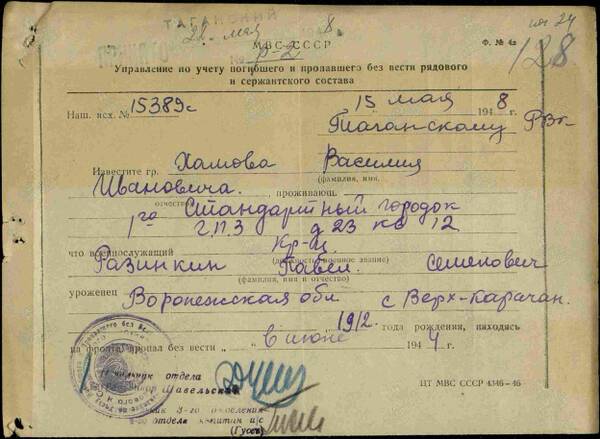 ТАГАНСКИЙ
21 мая 8
МВС СССР
Ф. № 4а
128
Управление по учету погибшего и пропавшего без вести рядового
и сержантского состава
Наш. исх. № 15389с
15 мая 1948 г.
Таганскому РВк
Известите гр. Хамова Василия
(фамилия, имя,
Ивановича. проживающ
отчество)
1го Стандартный городок
д 23 кв 12
что военнослужащий Кр-ц
военное звание)
Разинкин Павел Семенович
(фамилия, имя и отчество)
уроженец Воронежская обл с Верх-Карачан.
1912 года рождения, находясь
на фронте, пропал без вести в июне 1944 г.
отдела
Шавельский
ЦТ МВС СССР 4346-46
3-го отделения
-го отдела капитан и/с
(Гусев)